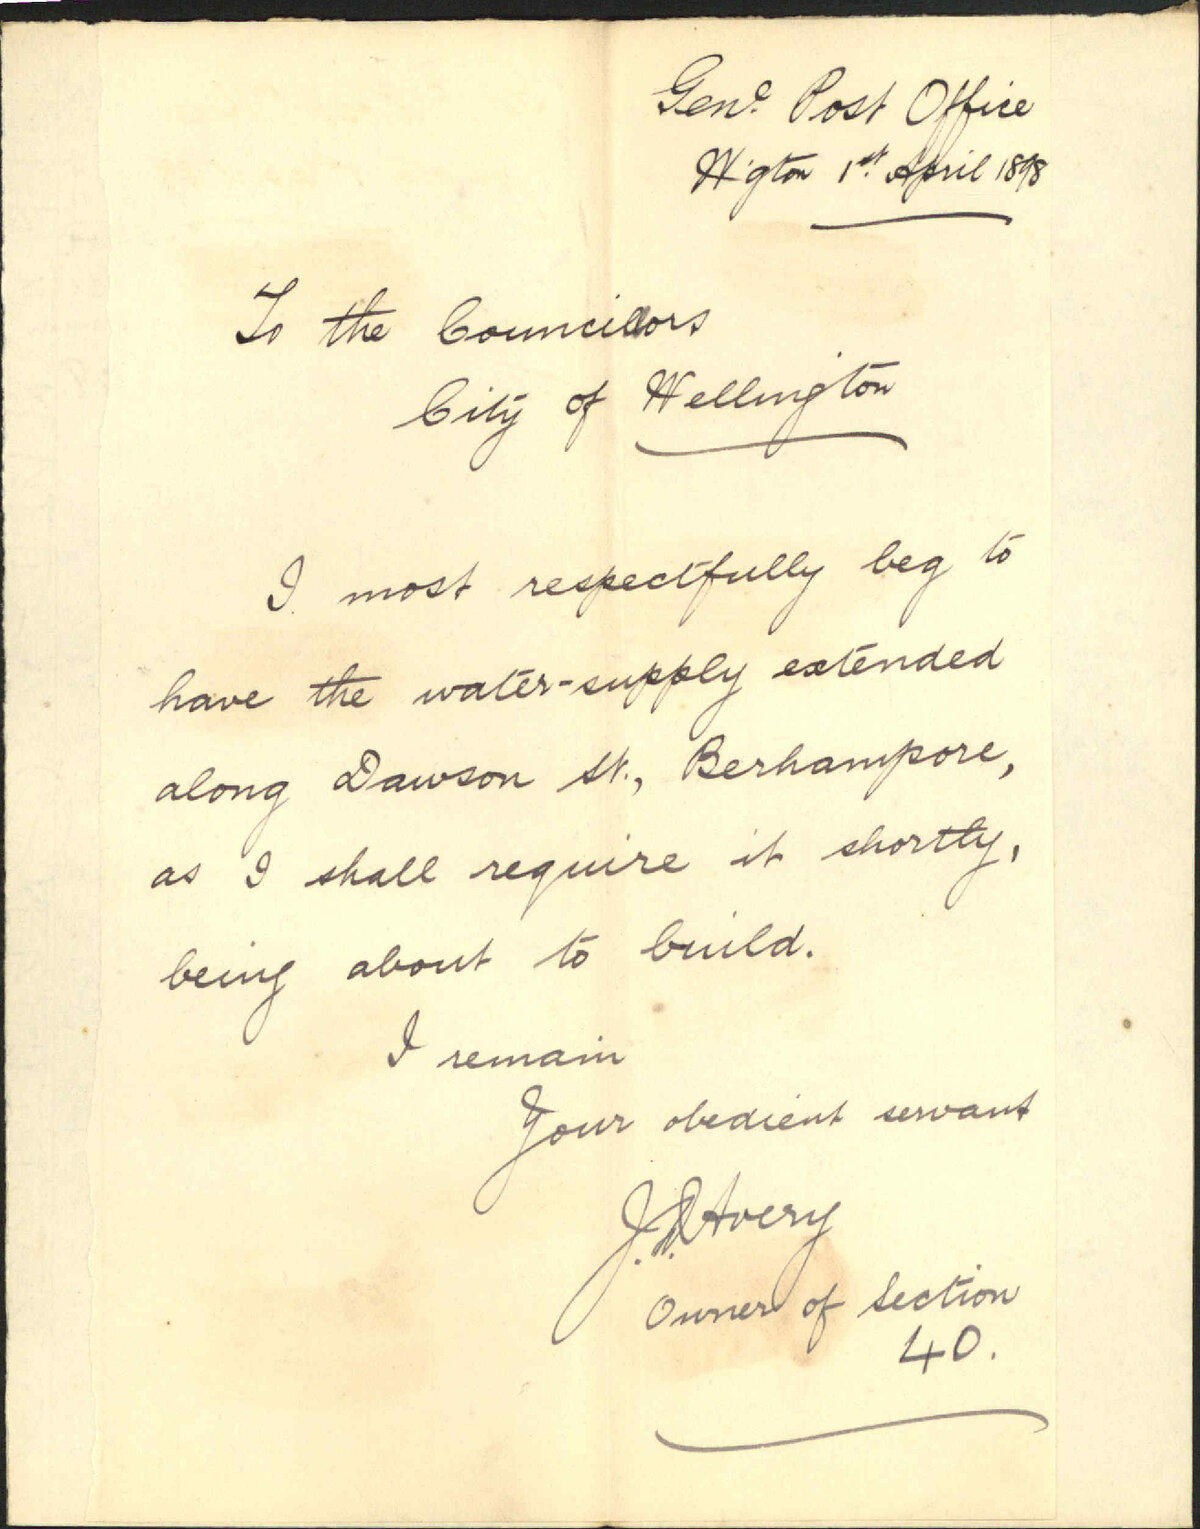 Genl. Post Office
W'gton 1st April 1898
To the Councillors
City of Wellington
I most respectfully beg to
have the water-supply extended
along Dawson St., Berhampore,
as I shall require it shortly,
being about to build.
I remain
Your obedient servant
J. Avery
Owner of Section
40.